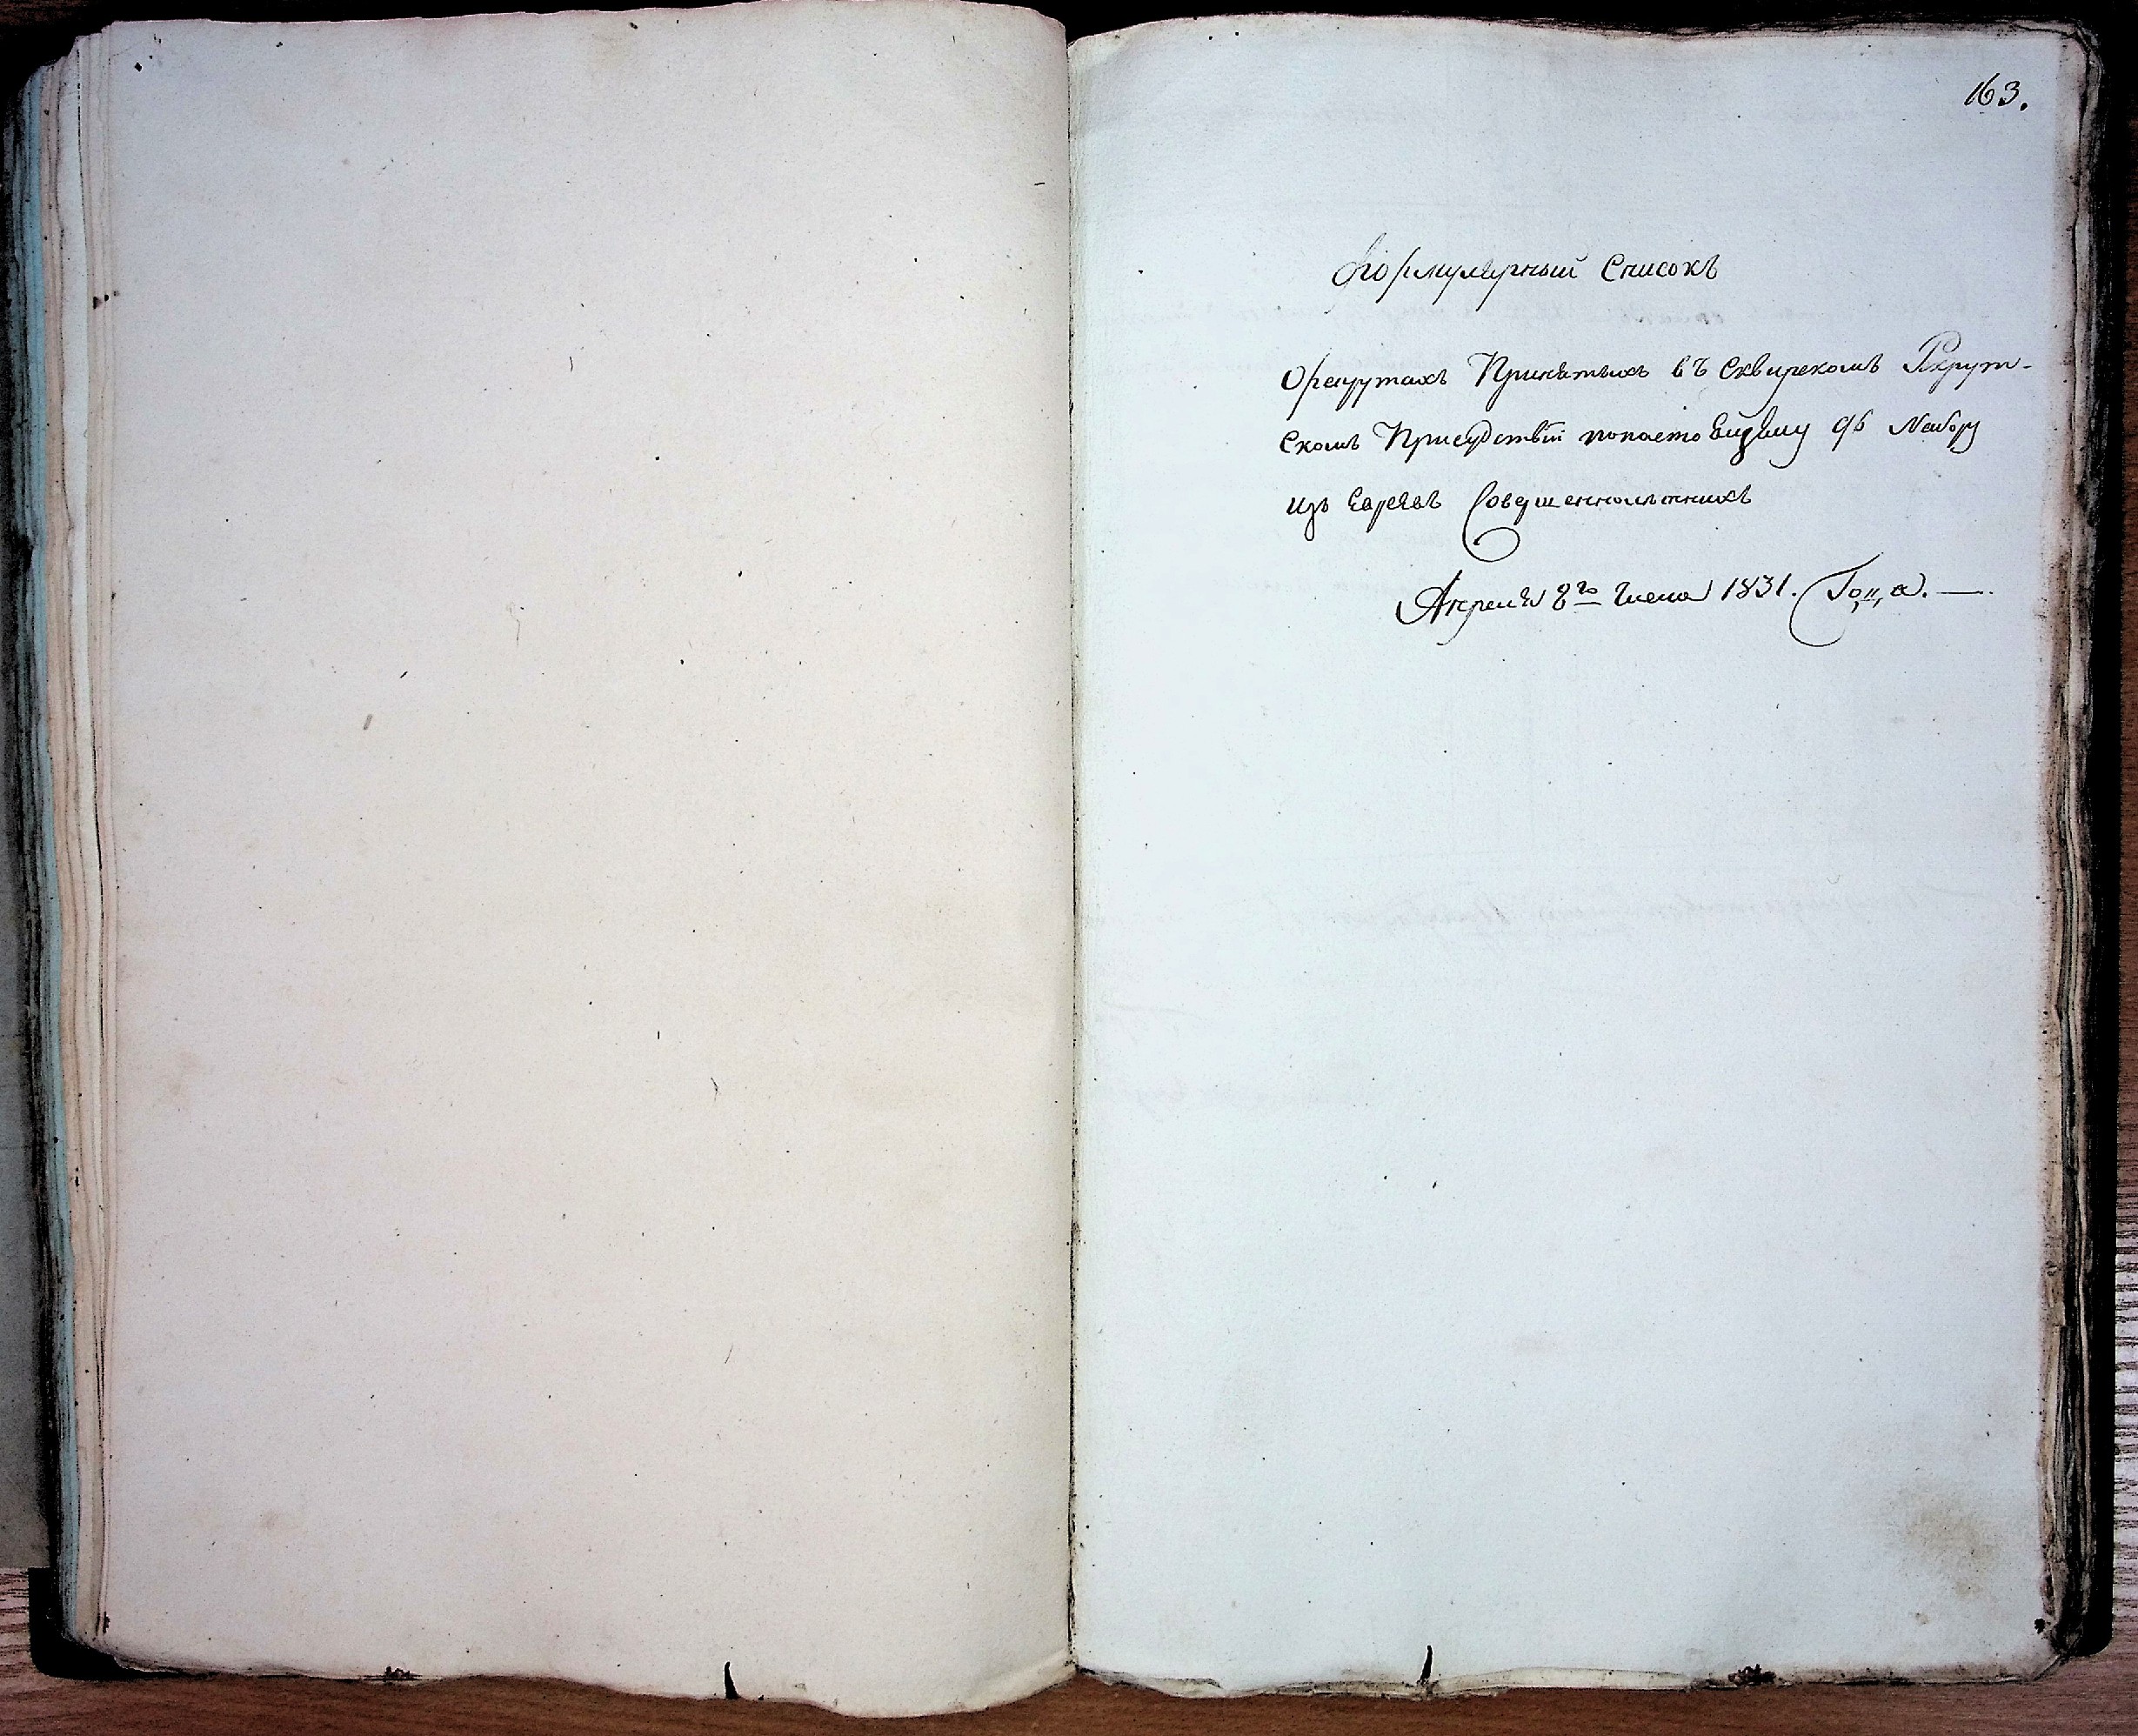 163.
Формулярный Списокъ
О рекрутахъ Принятыхъ въ Сквирскомъ Рекрут-
Скомъ Присудствіи понастоящему 96 Набору
изъ Евреевъ Совершеннолѣтнихъ
Апреля 8го числа 1831. Года. —